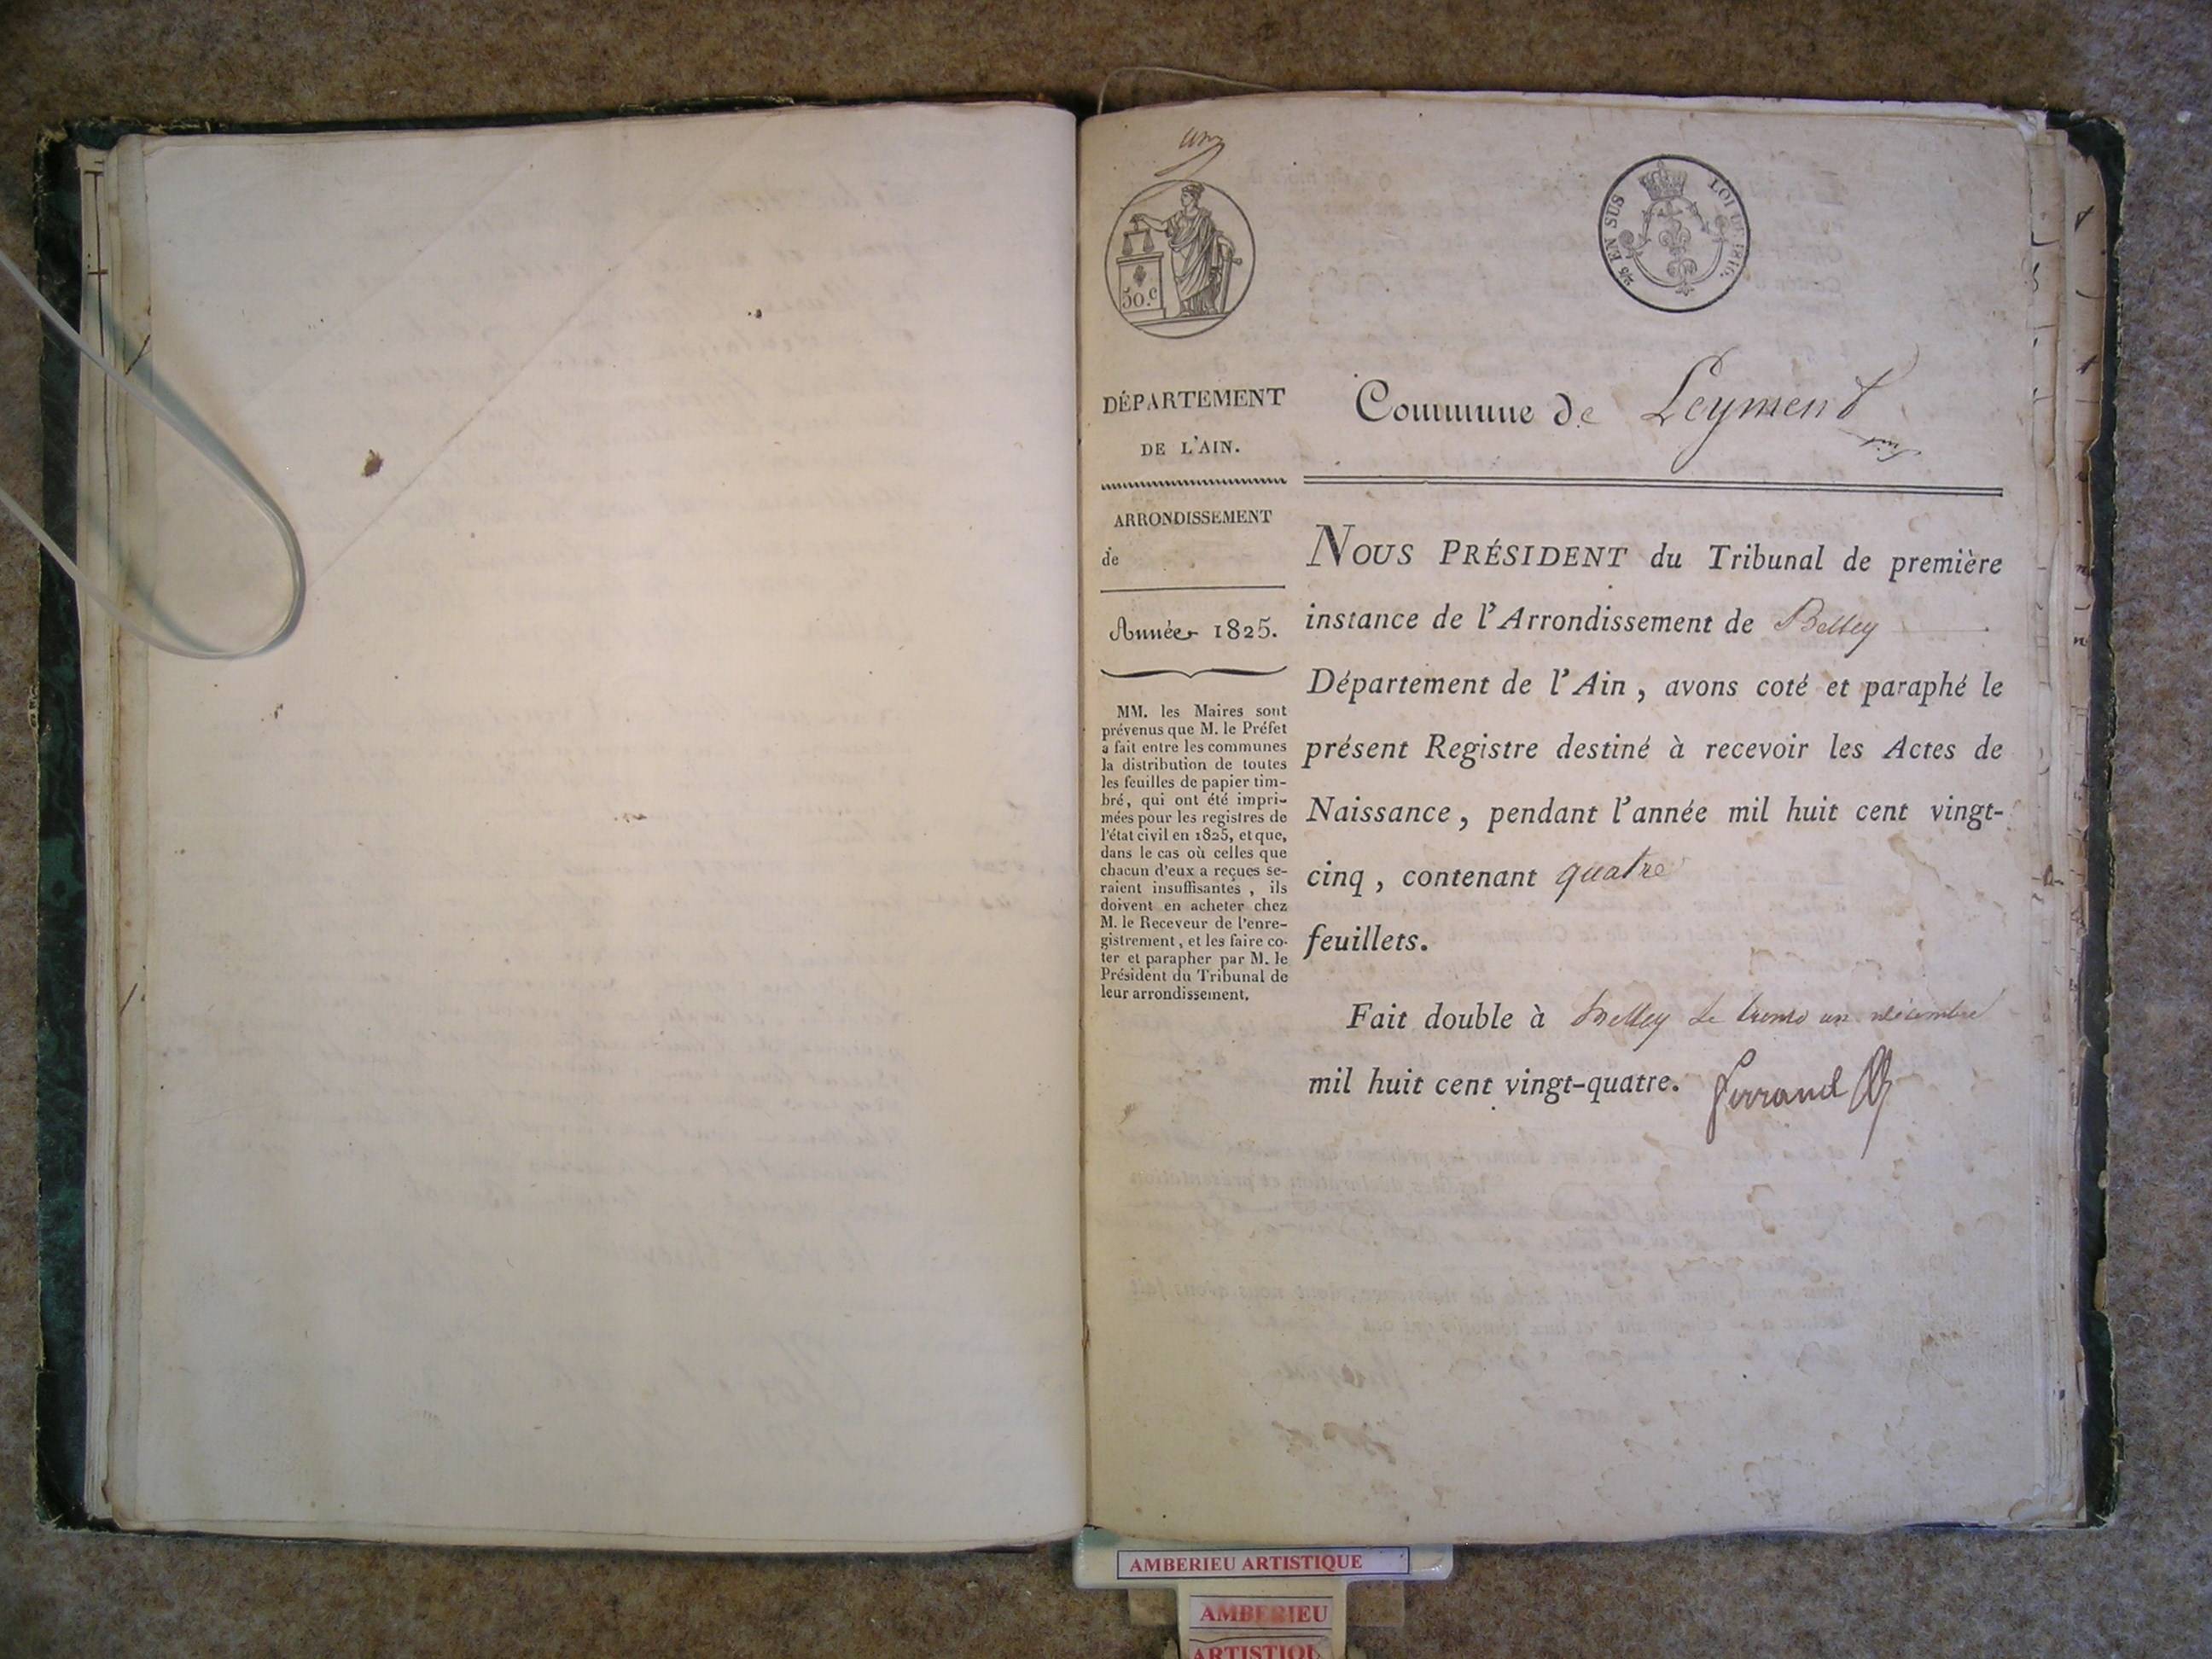 un
50.c
¼ EN SUS
LOI DE 1816.
DÉPARTEMENT
DE L'AIN.
ARRONDISSEMENT
de
Année 1825.
MM. les Maires sont
prévenus que M. le Préfet
a fait entre les communes
la distribution de toutes
les feuilles de papier tim-
bré, qui ont été impri-
mées pour les registres de
l'état civil en 1825, et que,
dans le cas où celles que
chacun d'eux a reçues se-
raient insuffisantes, ils
doivent en acheter chez
M. le Receveur de l'enre-
gistrement, et les faire co-
ter et parapher par M. le
Président du Tribunal de
leur arrondissement.
Commune de Leyment
NOUS PRÉSIDENT du Tribunal de première
instance de l'Arrondissement de Belley
Département de l'Ain, avons coté et paraphé le
présent Registre destiné à recevoir les Actes de
Naissance, pendant l'année mil huit cent vingt-
cinq, contenant quatre
feuillets.
Fait double à Belley le trente un décembre
mil huit cent vingt-quatre. Ferrand
AMBERIEU ARTISTIQUE
AMBERIEU
ARTISTIQU